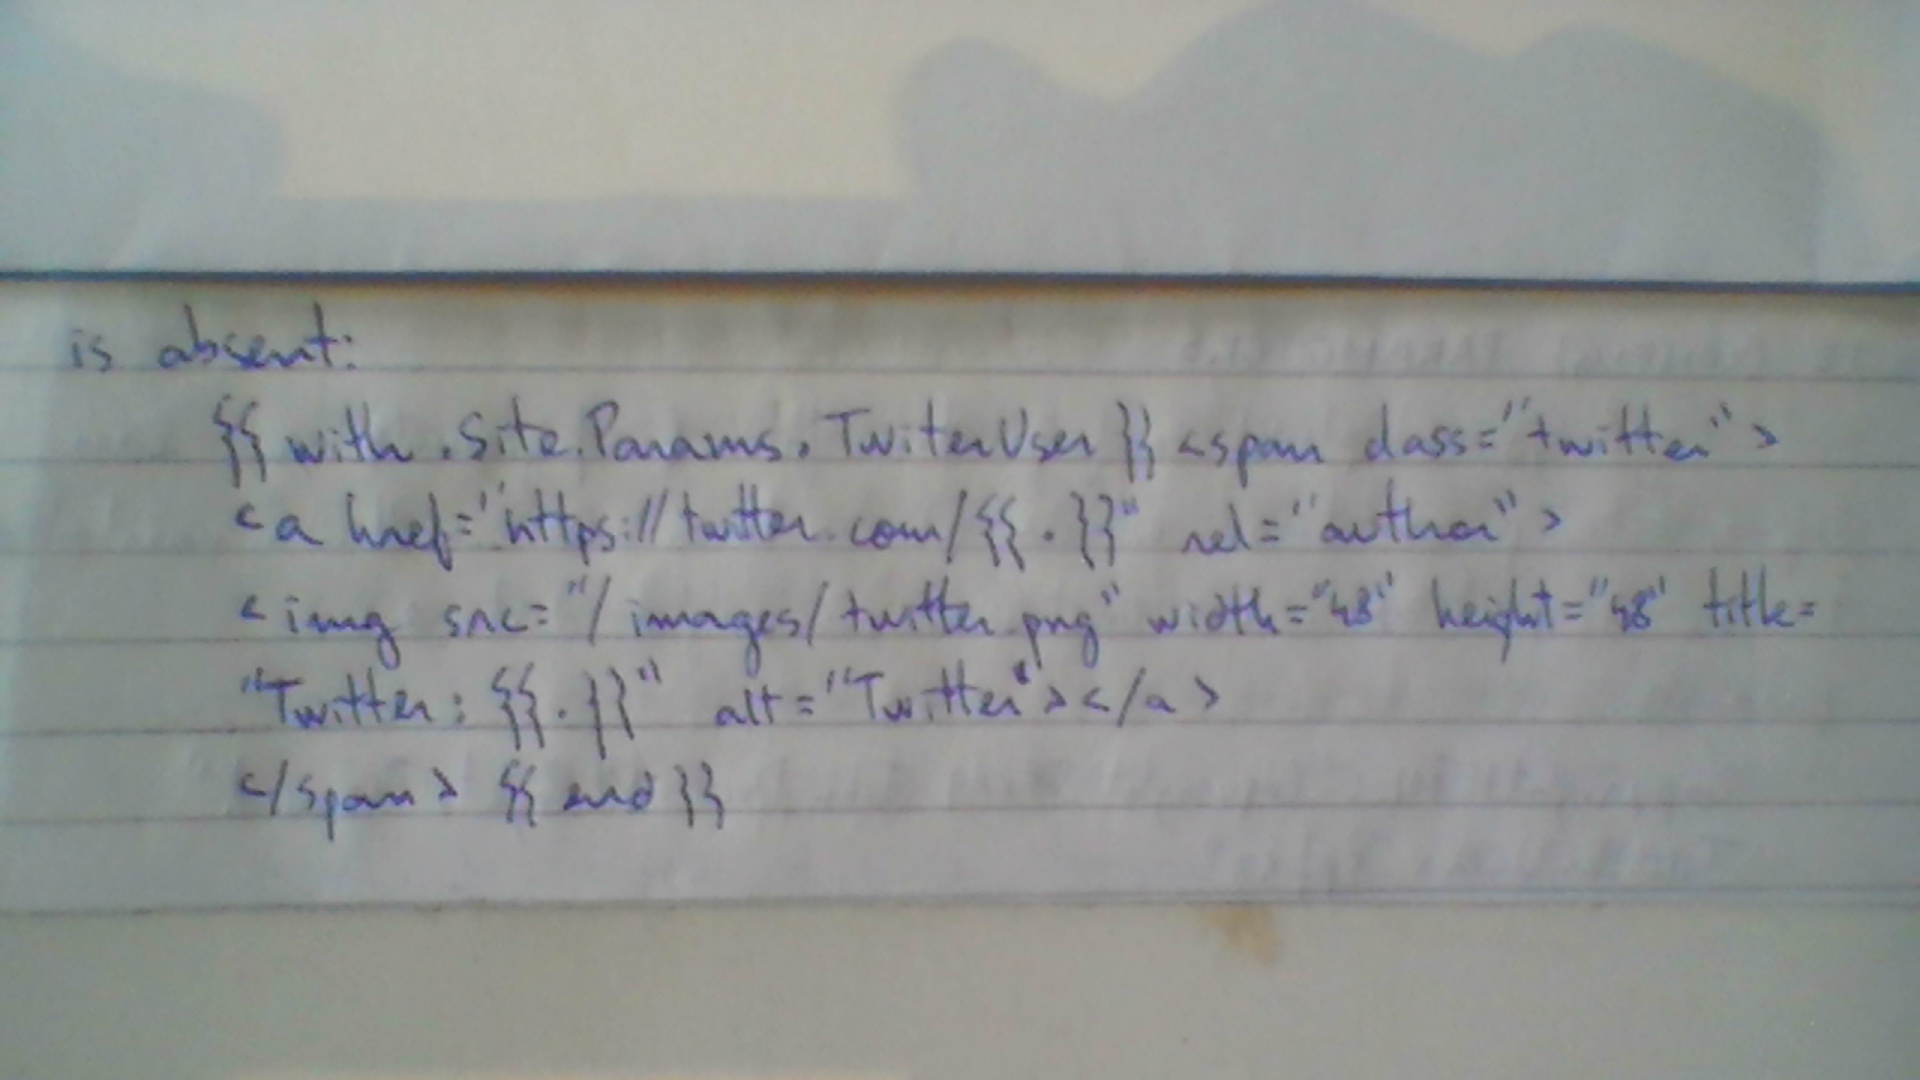 is absent:
{{ with .Site.Params.TwiterUser }} <span class="twitter">
<a href="https://twitter.com/{{ . }}" rel="author">
<img src="/images/twitter.png" width="48" height="48" title=
"Twitter: {{ . }}" alt="Twitter"></a>
</span> {{ end }}